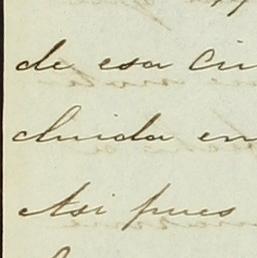 de esa Ciu
cluida en
Asi pues